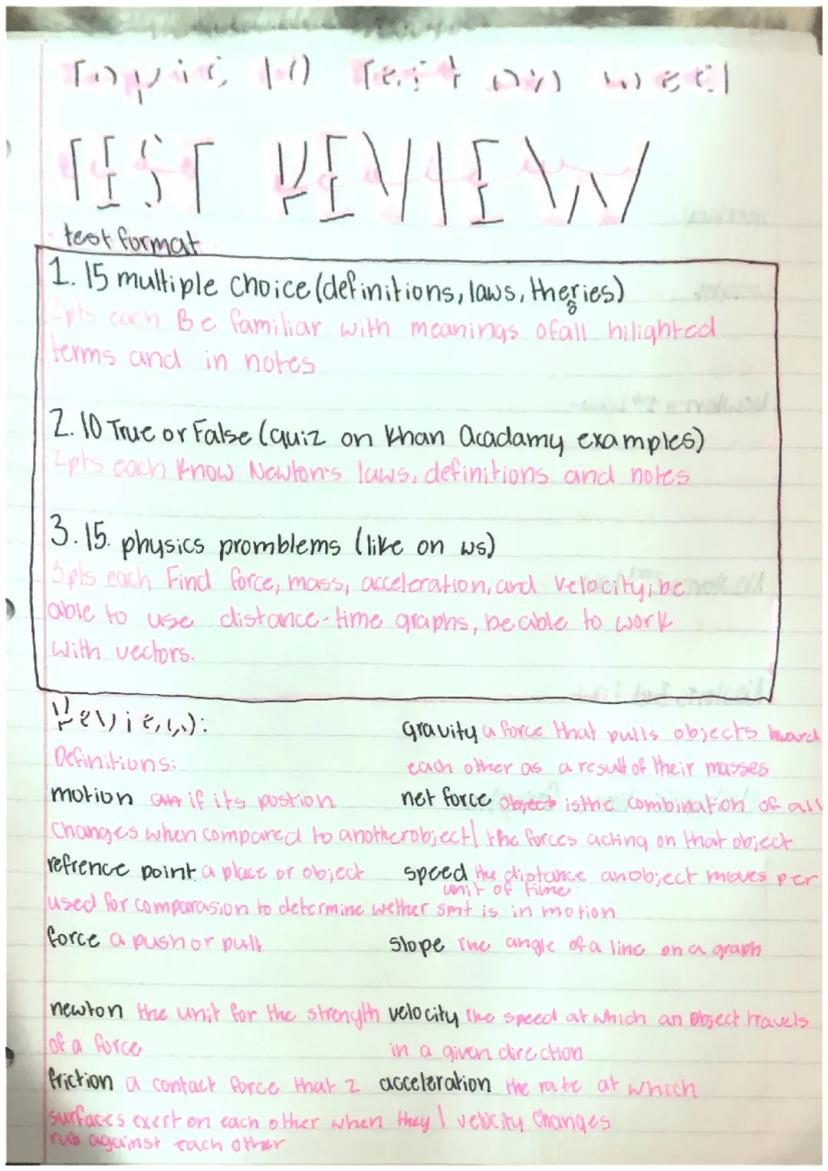 Topic 10 Test on wed
TEST REVIEW
test format
1. 15 multiple choice (definitions, laws, theories)
2pts each Be familiar with meanings of all hilighted
terms and in notes
2. 10 True or False (quiz on Khan Acadamy examples)
2pts each Know Newton's laws, definitions and notes
3. 15. physics promblems (like on ws)
3pts each Find force, mass, acceleration, and velocity; be
able to use distance-time graphs, be able to work
with vectors.
Review:
Definitions:
motion if its postion
changes when compared to another object
refrence point a place or object
used for comparasion to determine wether smt is in motion
force a push or pull
newton the unit for the strength
of a force
friction a contact force that 2
surfaces exert on each other when they
rub against each other
gravity a force that pulls objects toward
each other as a result of their masses
net force object is the combination of all
the forces acting on that object
speed the distance an object moves per
unit of time
slope the angle of a line on a graph
velocity the speed at which an object travels
in a given direction
acceleration the rate at which
velocity changes